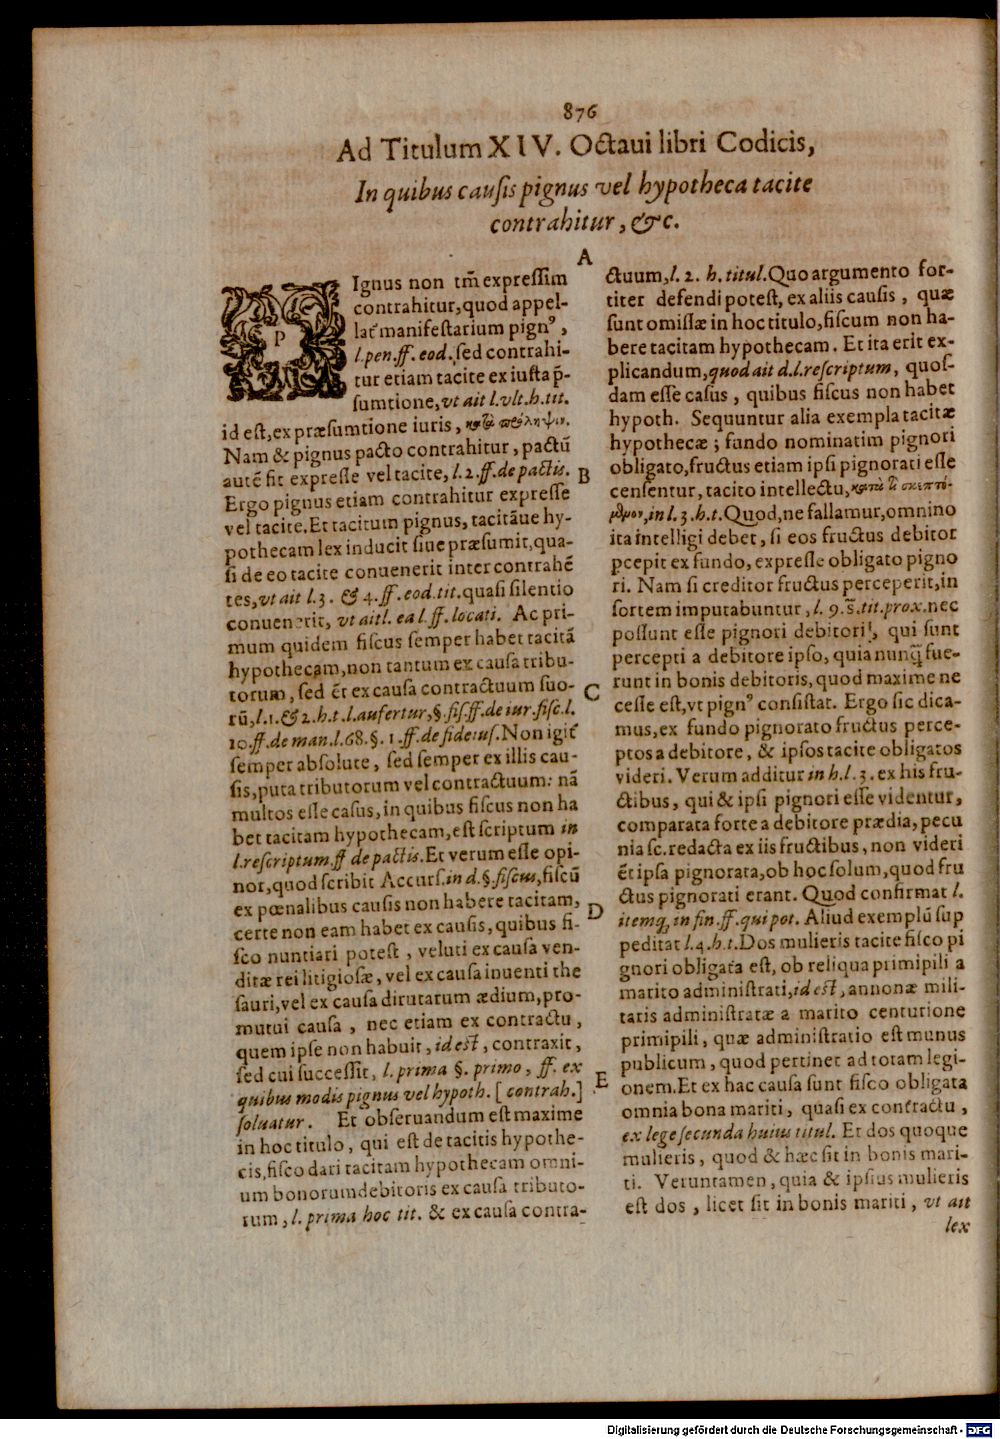 876
Ad Titulum XIV. Octaui libri Codicis,
In quibus causis pignus vel hypotheca tacite
contrahitur, &c.
A
PIgnus non tm̃ expressim
contrahitur, quod appel-
lať manifestarium pignꝰ,
l. pen. ff. eod. sed contrahi-
tur etiam tacite ex iusta p̃-
sumtione, vt ait l. vlt. h. tit.
id est, ex præsumtione iuris, κατὰ πρόληψιν.
Nam & pignus pacto contrahitur, pactũ
autẽ fit expresse vel tacite, l. 2. ff. de pactis.
Ergo pignus etiam contrahitur expresse
vel tacite. Et tacitum pignus, tacitãue hy-
pothecam lex inducit siue præsumit, qua-
si de eo tacite conuenerit inter contrahẽ
tes, vt ait l. 3. & 4. ff. eod. tit. quasi silentio
conuenerit, vt ait l. ea l. ff. locati. Ac pri-
mum quidem fiscus semper habet tacitã
hypothecam, non tantum ex causa tribu-
torum, sed ẽt ex causa contractuum suo-
rũ, l. 1. & 2. h. t. l. aufertur, §. fis. ff. de iur. fisc. l.
10. ff. de man. l. 68. §. 1. ff. de fideius. Non igiť
semper absolute, sed semper ex illis cau-
sis, puta tributorum vel contractuum: nã
multos esse casus, in quibus fiscus non ha
bet tacitam hypothecam, est scriptum in
l. rescriptum. ff de pactis. Et verum esse opi-
nor, quod scribit Accurs. in d. §. fiscus, fiscũ
ex pœnalibus causis non habere tacitam,
certe non eam habet ex causis, quibus fi-
sco nuntiari potest, veluti ex causa ven-
ditæ rei litigiosæ, vel ex causa inuenti the
sauri, vel ex causa dirutarum ædium, pro-
mutui causa, nec etiam ex contractu,
quem ipse non habuit, id est, contraxit,
sed cui successit, l. prima §. primo, ff. ex
quibus modis pignus vel hypoth. [contrah.]
soluatur. Et obseruandum est maxime
in hoc titulo, qui est de tacitis hypothe-
cis, fisco dari tacitam hypothecam omni-
um bonorum debitoris ex causa tributo-
rum, l. prima hoc tit. & ex causa contra-
B
C
D
E
ctuum, l. 2. h. titul. Quo argumento for-
titer defendi potest, ex aliis causis, quæ
sunt omissæ in hoc titulo, fiscum non ha-
bere tacitam hypothecam. Et ita erit ex-
plicandum, quod ait d. l. rescriptum, quos-
dam esse casus, quibus fiscus non habet
hypoth. Sequuntur alia exempla tacitæ
hypothecæ; fundo nominatim pignori
obligato, fructus etiam ipsi pignorati esse
censentur, tacito intellectu, κατὰ
in l. 3. h. t. Quod, ne fallamur, omnino
ita intelligi debet, si eos fructus debitor
pcepit ex fundo, expresse obligato pigno
ri. Nam si creditor fructus perceperit, in
sortem imputabuntur, l. 9. s̃. tit. prox. nec
possunt esse pignori debitori, qui sunt
percepti a debitore ipso, quia nunq̃ fue-
runt in bonis debitoris, quod maxime ne
cesse est, vt pignꝰ consistat. Ergo sic dica-
mus, ex fundo pignorato fructus perce-
ptos a debitore, & ipsos tacite obligatos
videri. Verum additur in h. l. 3. ex his fru-
ctibus, qui & ipsi pignori esse videntur,
comparata forte a debitore prædia, pecu
nia sc. redacta ex iis fructibus, non videri
ẽt ipsa pignorata, ob hoc solum, quod fru
ctus pignorati erant. Quod confirmat l.
itemq, in fin. ff. qui pot. Aliud exemplũ sup
peditat l. 4. h. t. Dos mulieris tacite fisco pi
gnori obligata est, ob reliqua primipili a
marito administrati, id est, annonæ mili-
taris administratæ a marito centurione
primipili, quæ administratio est munus
publicum, quod pertinet ad totam legi-
onem. Et ex hac causa sunt fisco obligata
omnia bona mariti, quasi ex contractu,
ex lege secunda huius titul. Et dos quoque
mulieris, quod & hæc sit in bonis mari-
ti. Veruntamen, quia & ipsius mulieris
est dos, licet sit in bonis mariti, vt ait
lex
Digitalisierung gefördert durch die Deutsche Forschungsgemeinschaft - DFG